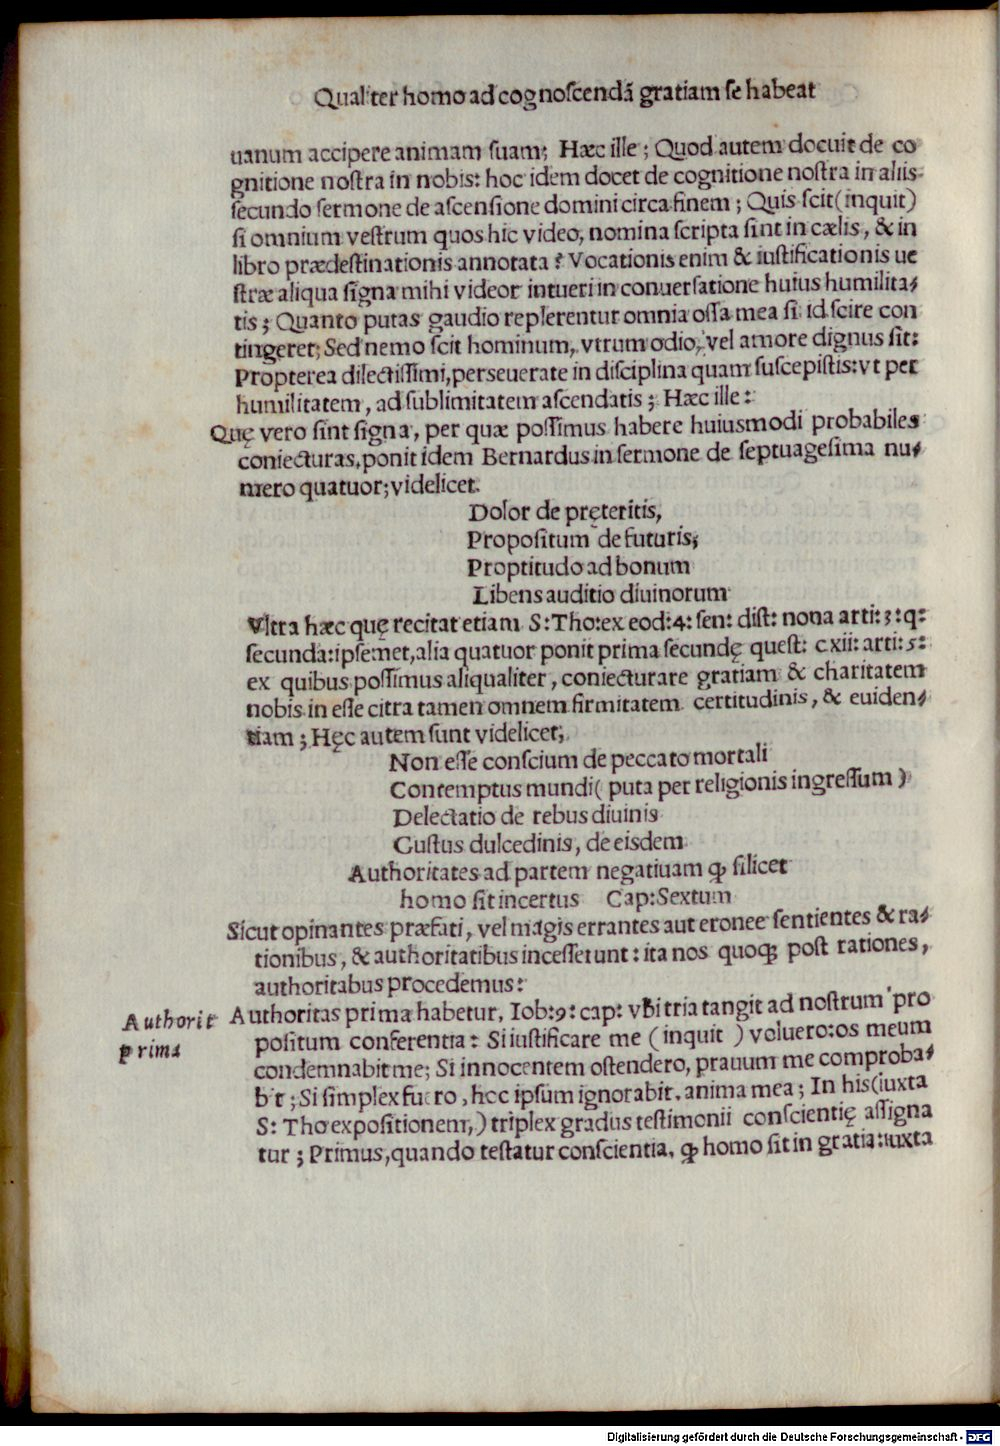 Qualiter homo ad cognoscendã gratiam se habeat
uanum accipere animam suam; Hæc ille; Quod autem docuit de co
gnitione nostra in nobis: hoc idem docet de cognitione nostra in aliis
secundo sermone de ascensione domini circa finem; Quis scit(inquit)
si omnium vestrum quos hic video, nomina scripta sint in cælis, & in
libro prædestinationis annotata? Vocationis enim & iustificationis ue
stræ aliqua signa mihi videor intueri in conuersatione huius humilita/
tis; Quanto putas gaudio replerentur omnia ossa mea si id scire con
tingeret; Sed nemo scit hominum, vtrum odio, vel amore dignus sit:
Propterea dilectissimi, perseuerate in disciplina quam suscepistis: vt per
humilitatem, ad sublimitatem ascendatis; Hæc ille:
Quę vero sint signa, per quæ possimus habere huiusmodi probabiles
coniecturas, ponit idem Bernardus in sermone de septuagesima nu/
mero quatuor; videlicet.
Dolor de pręteritis,
Propositum de futuris;
Proptitudo ad bonum
Libens auditio diuinorum
Vltra hæc quę recitat etiam S: Tho: ex eod: 4: sen: dist: nona arti: 3: q:
secunda: ipsemet, alia quatuor ponit prima secundę quest: cxii: arti: 5:
ex quibus possimus aliqualiter, coniecturare gratiam & charitatem
nobis in esse citra tamen omnem firmitatem certitudinis, & euiden/
tiam; Hęc autem sunt videlicet;
Non esse conscium de peccato mortali
Contemptus mundi( puta per religionis ingressum )
Delectatio de rebus diuinis
Gustus dulcedinis, de eisdem
Authoritates ad partem negatiuam ꝙ silicet
homo sit incertus Cap: Sextum
Sicut opinantes præfati, vel magis errantes aut eronee sentientes & ra/
tionibus, & authoritatibus incesserunt: ita nos quoqꝫ post rationes,
authoritabus procedemus:
Authorit
prima
Authoritas prima habetur, Iob: 9: cap: vbi tria tangit ad nostrum pro
positum conferentia: Si iustificare me ( inquit ) voluero: os meum
condemnabit me; Si innocentem ostendero, prauum me comproba/
bit; Si simplex fuero, hoc ipsum ignorabit, anima mea; In his(iuxta
S: Tho expositionem,) triplex gradus testimonii conscientię assigna
tur; Primus, quando testatur conscientia, ꝙ homo sit in gratia: iuxta
Digitalisierung gefördert durch die Deutsche Forschungsgemeinschaft - DFG